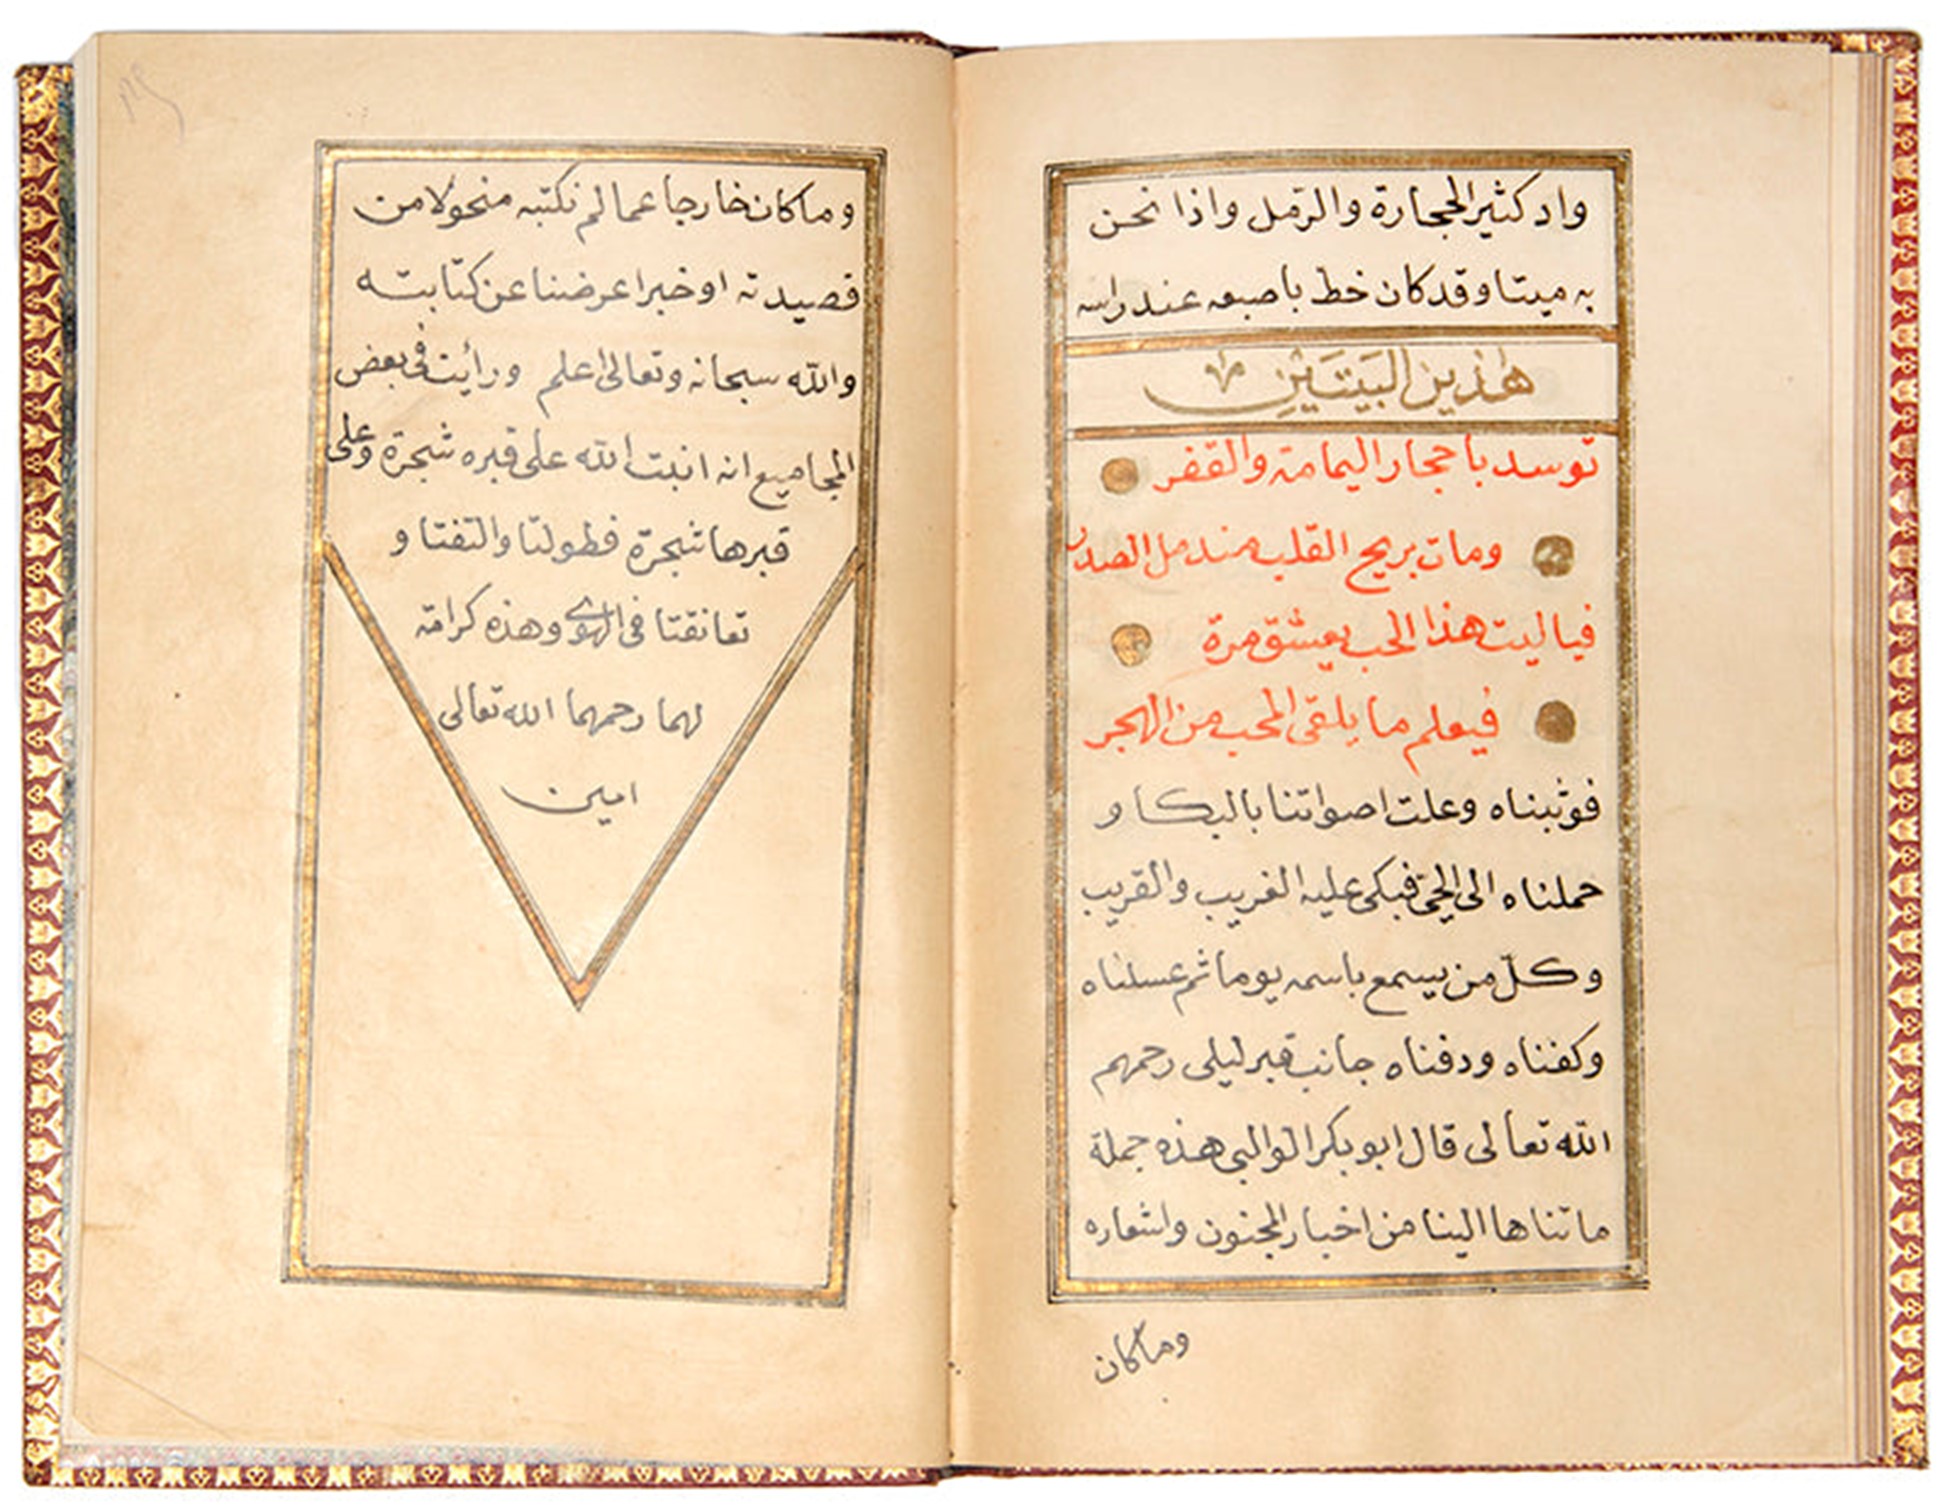 واد كثير الحجارة والرمل واذا نحن
به ميتا وقد كان خط باصبعه عند راسه
هذين البيتين
توسد باحجار اليمامة والقفر
ومات بريح القلب مندمل الصدر
فيا ليت هذا الحب يعشق مرة
فيعلم ما يلقى المحب من الهجر
فوثبناه وعلت اصواتنا بالبكا و
حملناه الى الحي فبكى عليه الغريب والقريب
وكل من يسمع باسمه يوما ثم غسلناه
وكفناه ودفناه جانب قبر ليلى رحمهم
الله تعالى قال ابو بكر الوالبي هذه جملة
ما تناها الينا من اخبار المجنون واشعاره
وما كان
وما كان خارجا عما لم نكتبه منحولا من
قصيدته او خبرا عرضنا عن كتابته
والله سبحانه وتعالى اعلم ورأيت في بعض
المجاميع انه انبت الله على قبره شجرة وعلى
قبرها شجرة فطولتا والتفتا و
تعانقتا في الهوى وهذه كرامة
لهما رحمهما الله تعالى
امين